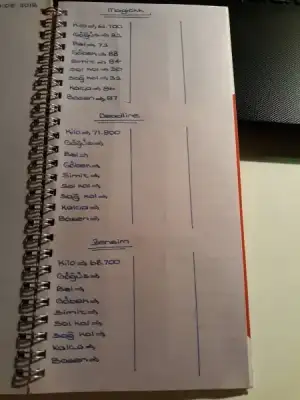 Kilo → 61.700
Göğüs → 92
Bel → 73
Göbek → 88
Simit → 94
Sol kol → 30
Sağ kol → 32
Kalça → 96
Basen → 97
Deadline
Kilo → 71.800
Göğüs →
Bel →
Göbek →
Simit →
Sol kol →
Sağ kol →
Kalça →
Basen →
Benim
Kilo → 68.700
Göğüs →
Bel →
Göbek →
Simit →
Sol kol →
Sağ kol →
Kalça →
Basen →